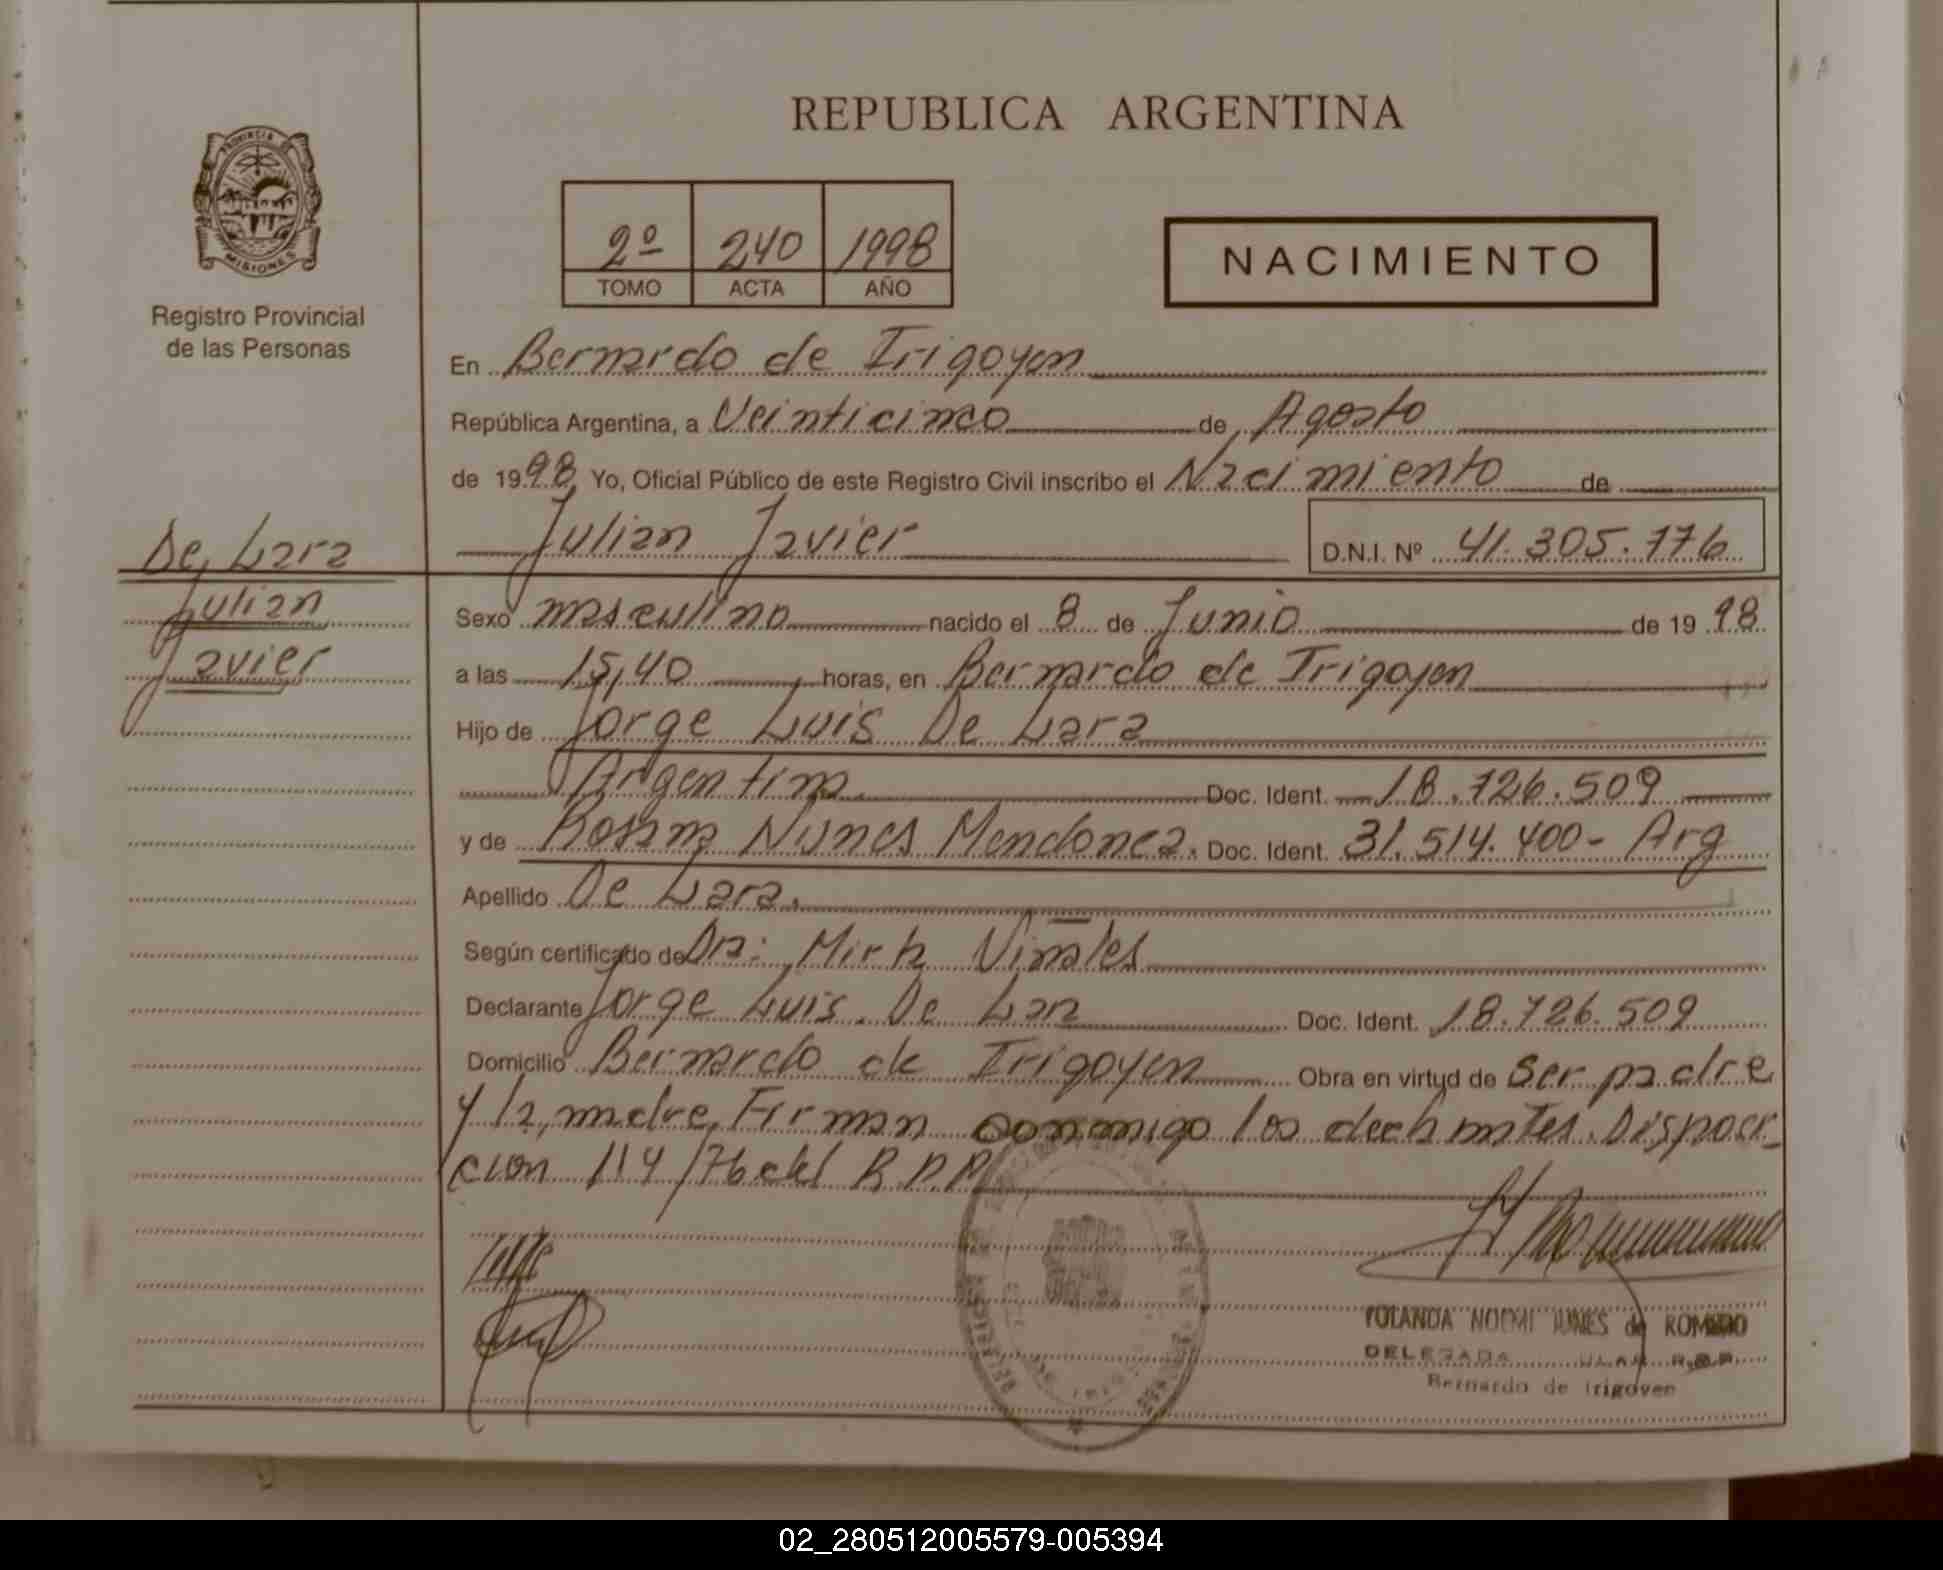 REPUBLICA ARGENTINA
PROVINCIA DE
MISIONES
Registro Provincial
de las Personas
2º 240 1998
TOMO ACTA AÑO
NACIMIENTO
En Bernardo de Irigoyen
República Argentina, a Veinticinco de Agosto
de 1998 Yo, Oficial Público de este Registro Civil inscribo el Nacimiento de
Julian Javier D.N.I. Nº 41.305.776
De Lara
Julian
Javier
Sexo masculino nacido el 8 de Junio de 1998
a las 15,40 horas, en Bernardo de Irigoyen
Hijo de Jorge Luis De Lara
Argentino Doc. Ident. 18.726.509
y de Rosana Nunes Mendonca. Doc. Ident. 31.514.400- Arg
Apellido De Lara.
Según certificado de Dra: Mirta
Declarante Jorge Luis De Lara Doc. Ident. 18.726.509
Domicilio Bernardo de Irigoyen Obra en virtud de ser padre
y la madre, Firman conmigo los declarantes. Disposi-
cion 114/76 del R.P.P
YOLANDA NOEMI de ROMERO
DELEGADA R.P.P.
Bernardo de Irigoyen
02_280512005579-005394